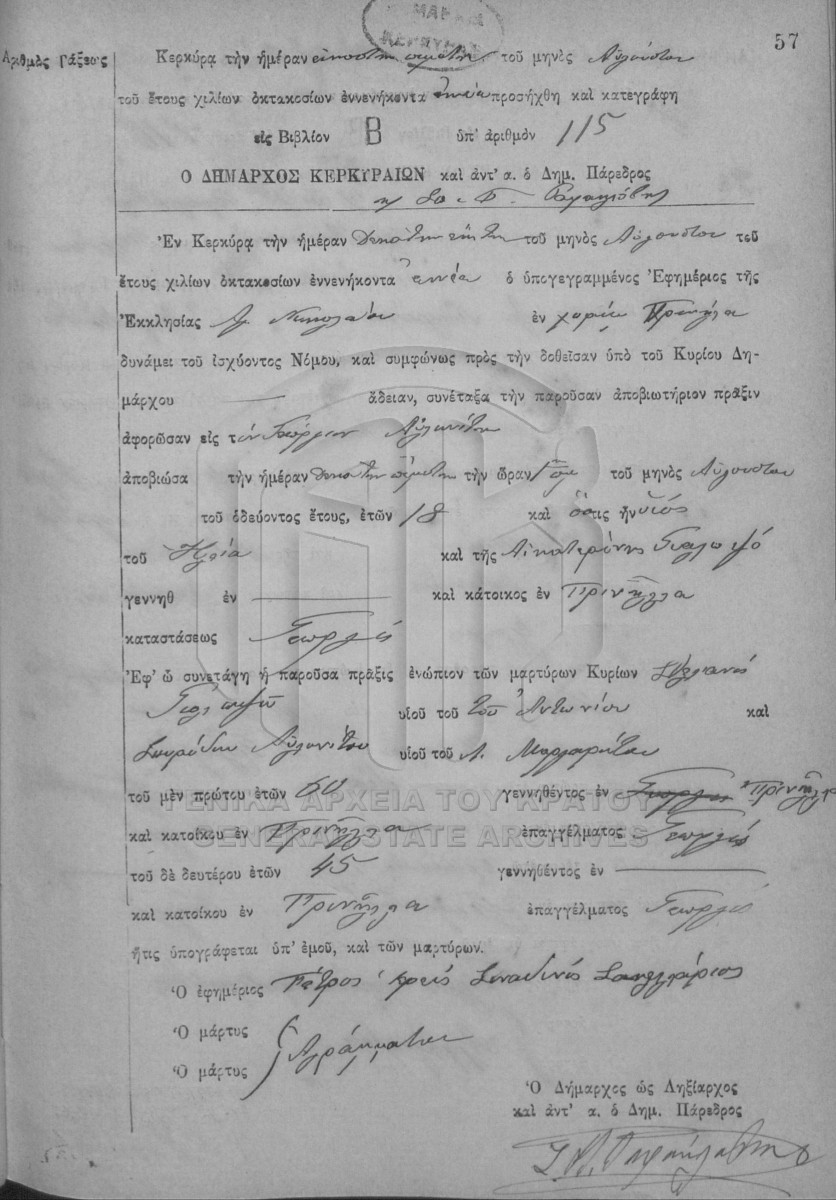 57
Ἀριθμὸς Τάξεως
Κερκύρᾳ τὴν ἡμέραν εἰκοστὴν πέμπτην τοῦ μηνὸς Αὐγούστου
τοῦ ἔτους χιλίων ὀκτακοσίων ἐννενήκοντα ἐννέα προσήχθη καὶ κατεγράφη
εἰς Βιβλίον Β ὑπ' ἀριθμὸν 115
Ο ΔΗΜΑΡΧΟΣ ΚΕΡΚΥΡΑΙΩΝ καὶ ἀντ' α. ὁ Δημ. Πάρεδρος
Ἐν Κερκύρᾳ τὴν ἡμέραν δεκάτην ἕκτην τοῦ μηνὸς Αὐγούστου τοῦ
ἔτους χιλίων ὀκτακοσίων ἐννενήκοντα ἐννέα ὁ ὑπογεγραμμένος Ἐφημέριος τῆς
Ἐκκλησίας Ἁγ. Νικολάου ἐν χωρίῳ Πρινύλα
δυνάμει τοῦ ἰσχύοντος Νόμου, καὶ συμφώνως πρὸς τὴν δοθεῖσαν ὑπὸ τοῦ Κυρίου Δη-
μάρχου — ἄδειαν, συνέταξα τὴν παροῦσαν ἀποβιωτήριον πρᾶξιν
ἀφορῶσαν εἰς τὸν Γεώργιον Αὐλωνίτην
ἀποβιώσα τὴν ἡμέραν δεκάτην πέμπτην τὴν ὥραν 1 πμ τοῦ μηνὸς Αὐγούστου
τοῦ ὁδεύοντος ἔτους, ἐτῶν 18 καὶ ὅστις ἦν υἱός
τοῦ Ἠλία καὶ τῆς Αἰκατερίνης Γιαλοψό
γεννηθ ἐν — καὶ κάτοικος ἐν Πρινύλλα
καταστάσεως Γεωργός
Ἐφ' ᾧ συνετάγη ἡ παροῦσα πρᾶξις ἐνώπιον τῶν μαρτύρων Κυρίων Στυλιανός
Γιαλοψό υἱοῦ τοῦ τοῦ Ἀντωνίου καὶ
Σπυρίδων Αὐλωνίτου υἱοῦ τοῦ Λ. Μαργαρίτου
τοῦ μὲν πρώτου ἐτῶν 60 γεννηθέντος ἐν Γεωργός Πρινύλλα
καὶ κατοίκου ἐν Πρινύλλα ἐπαγγέλματος Γεωργός
τοῦ δὲ δευτέρου ἐτῶν 45 γεννηθέντος ἐν —
καὶ κατοίκου ἐν Πρινύλλα ἐπαγγέλματος Γεωργός
ἥτις ὑπογράφεται ὑπ' ἐμοῦ, καὶ τῶν μαρτύρων.
Ὁ ἐφημέριος Πέτρος ἱερεὺς Σιναδινός Σακελλάριος
Ὁ μάρτυς
Ἀγράμματοι
Ὁ μάρτυς
Ὁ Δήμαρχος ὡς Ληξίαρχος
καὶ ἀντ' α. ὁ Δημ. Πάρεδρος
ΓΕΝΙΚΑ ΑΡΧΕΙΑ ΤΟΥ ΚΡΑΤΟΥΣ
GENERAL STATE ARCHIVES